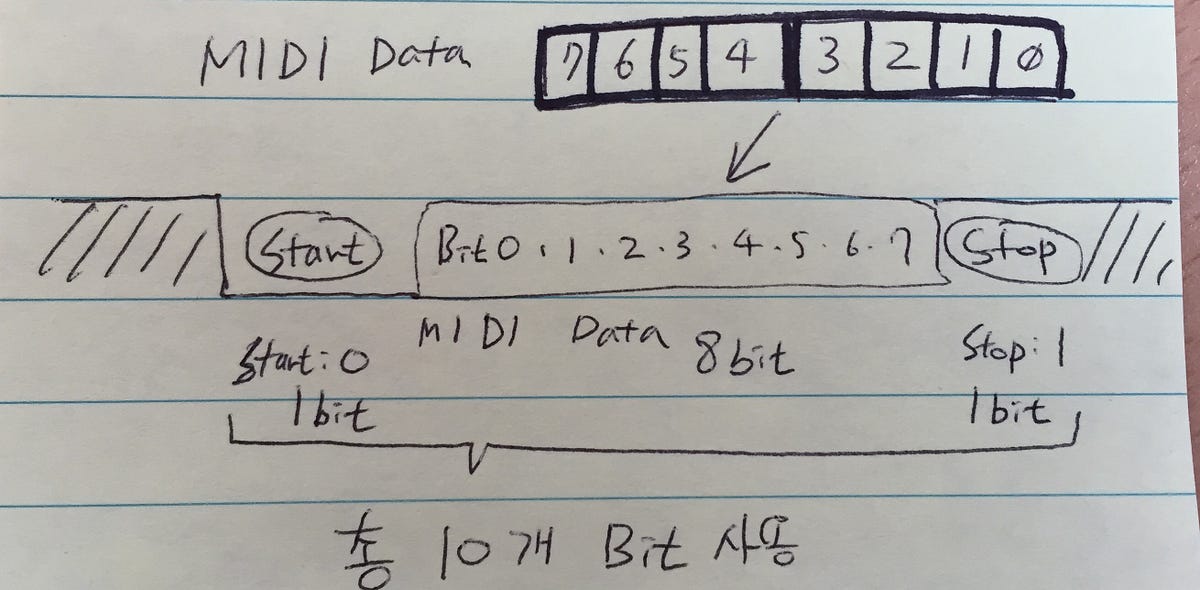 MIDI Data 7 6 5 4 3 2 1 0
Start Bit 0 · 1 · 2 · 3 · 4 · 5 · 6 · 7 Stop
MIDI Data 8bit
Start: 0 Stop: 1
1bit 1bit
총 10개 Bit 사용